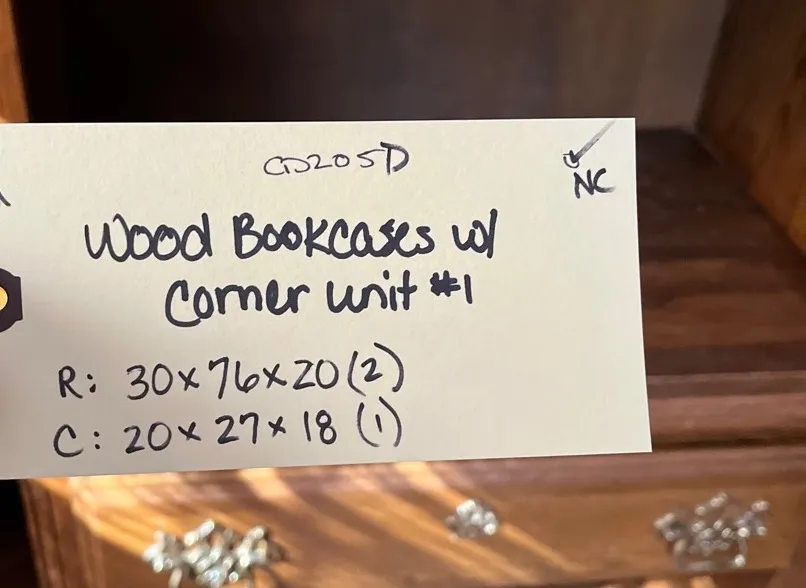 GD205D
NC
Wood Bookcases w/
Corner unit #1
R: 30x76x20 (2)
C: 20x27x18 (1)